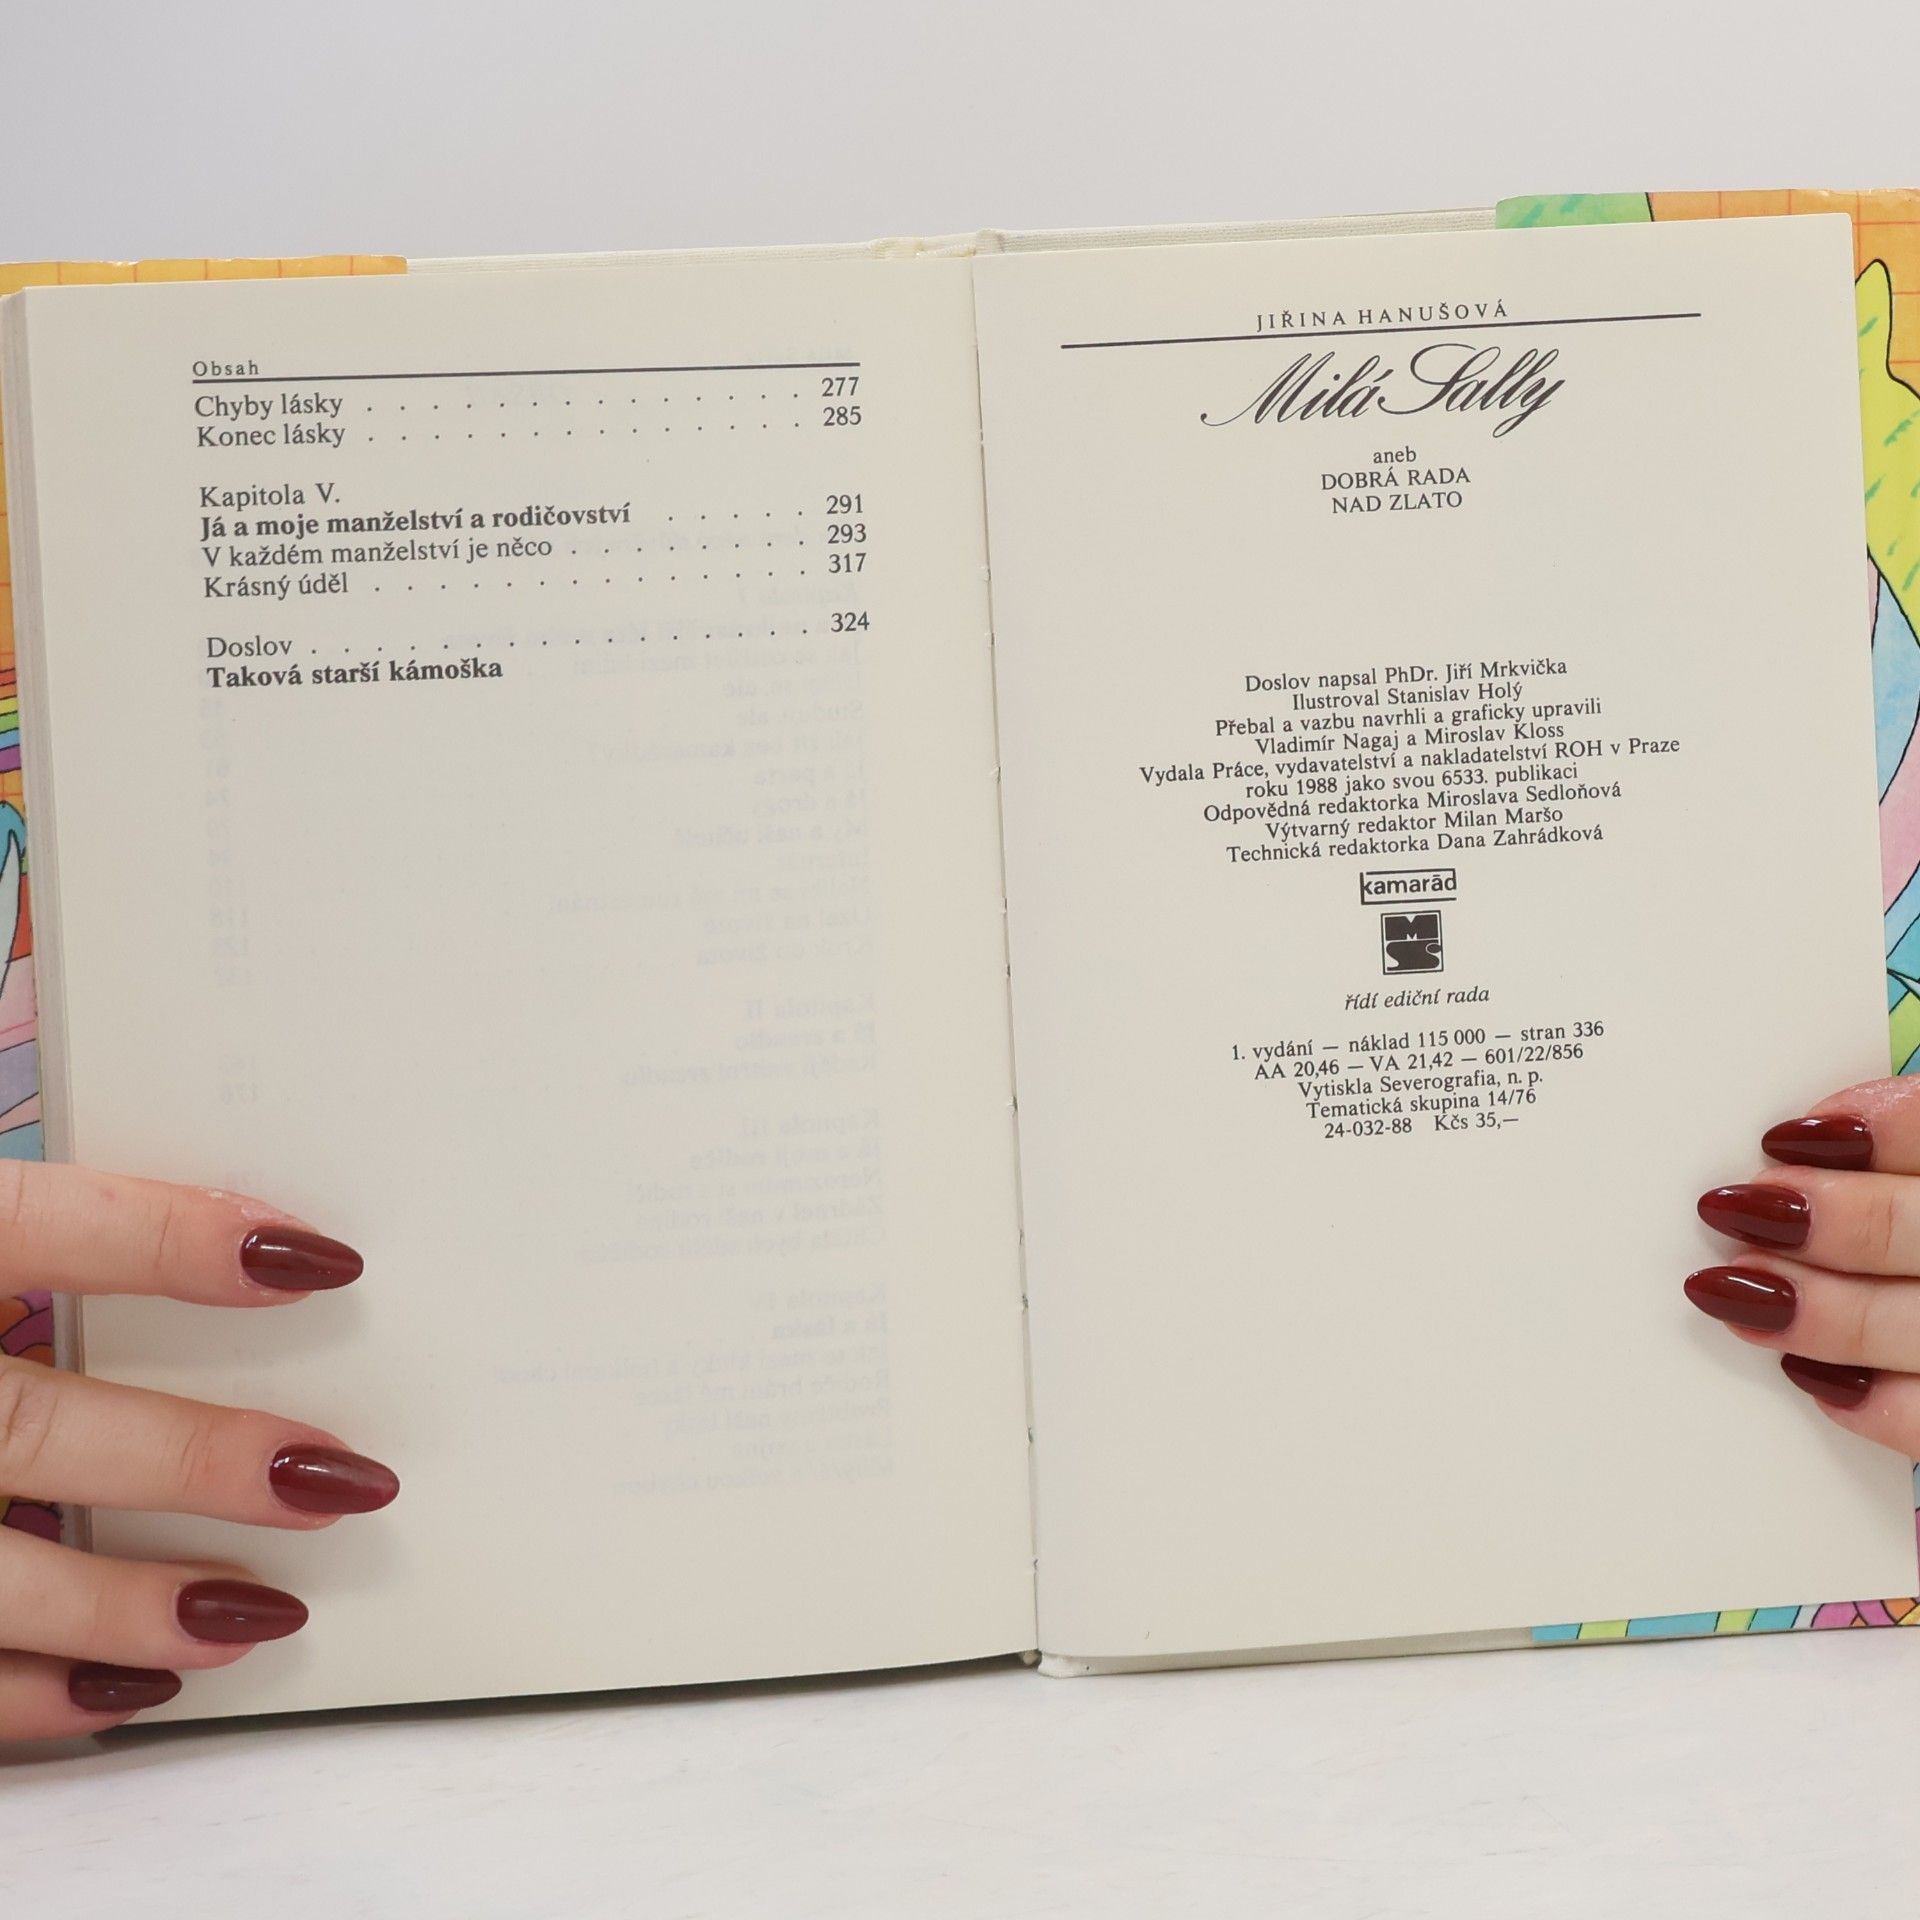 Obsah
Chyby lásky . . . . . . . . . . . . . . 277
Konec lásky . . . . . . . . . . . . . . 285
Kapitola V.
Já a moje manželství a rodičovství . . . . . 291
V každém manželství je něco . . . . . . . . 293
Krásný úděl . . . . . . . . . . . . . . 317
Doslov . . . . . . . . . . . . . . . . 324
Taková starší kámoška
JIŘINA HANUŠOVÁ
Milá Sally
aneb
DOBRÁ RADA
NAD ZLATO
Doslov napsal PhDr. Jiří Mrkvička
Ilustroval Stanislav Holý
Přebal a vazbu navrhli a graficky upravili
Vladimír Nagaj a Miroslav Kloss
Vydala Práce, vydavatelství a nakladatelství ROH v Praze
roku 1988 jako svou 6533. publikaci
Odpovědná redaktorka Miroslava Sedloňová
Výtvarný redaktor Milan Maršo
Technická redaktorka Dana Zahrádková
kamarád
MS
řídí ediční rada
1. vydání — náklad 115 000 — stran 336
AA 20,46 — VA 21,42 — 601/22/856
Vytiskla Severografia, n. p.
Tematická skupina 14/76
24-032-88 Kčs 35,—